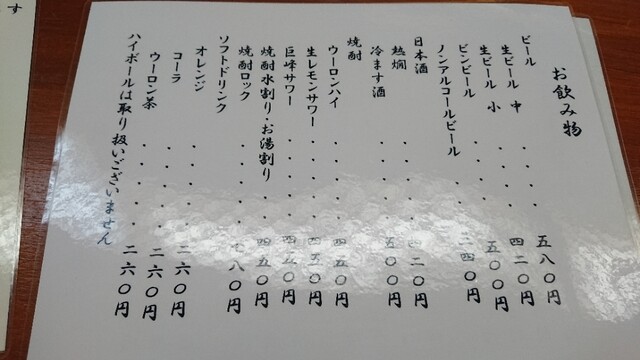 お飲み物
ビール
生ビール 中 ・・・・ 五八〇円
生ビール 小 ・・・・ 四二〇円
ビンビール ・・・・ 五〇〇円
ノンアルコールビール ・・ 四〇円
日本酒
熱燗 ・・・・ 四二〇円
冷ます酒 ・・・・ 五〇〇円
焼酎
ウーロンハイ ・・・・ 四五〇円
生レモンサワー ・・・・ 四五〇円
巨峰サワー ・・・・ 四五〇円
焼酎水割り・お湯割り ・・ 四五〇円
焼酎ロック ・・・・ 八〇円
ソフトドリンク
オレンジ ・・・・ 二六〇円
コーラ ・・・・ 二六〇円
ウーロン茶 ・・・・ 二六〇円
ハイボールは取り扱いございません
す